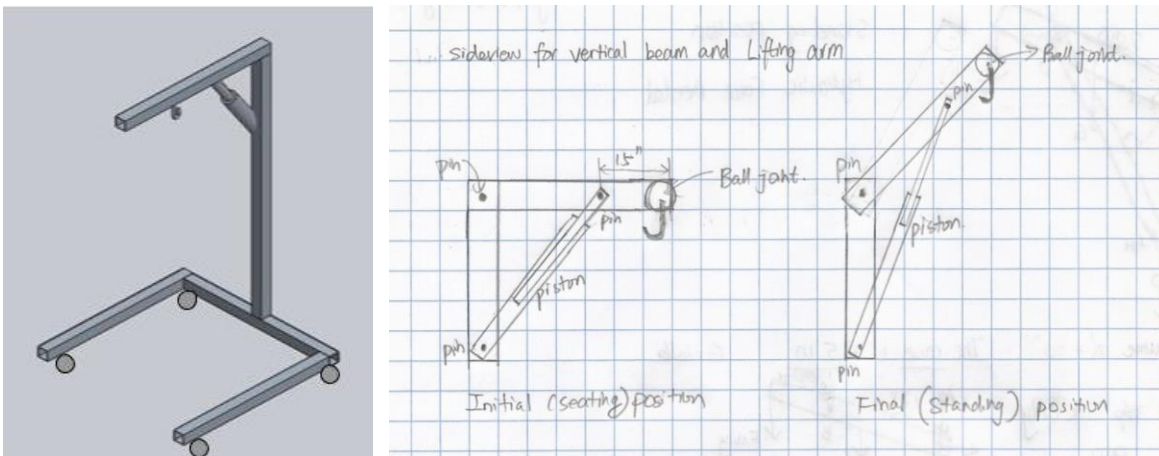 sideview for vertical beam and Lifting arm
pin
15"
Ball joint.
pin
piston
pin
Initial (seating) position
Ball joint.
pin
pin
piston.
pin
Final (Standing) position